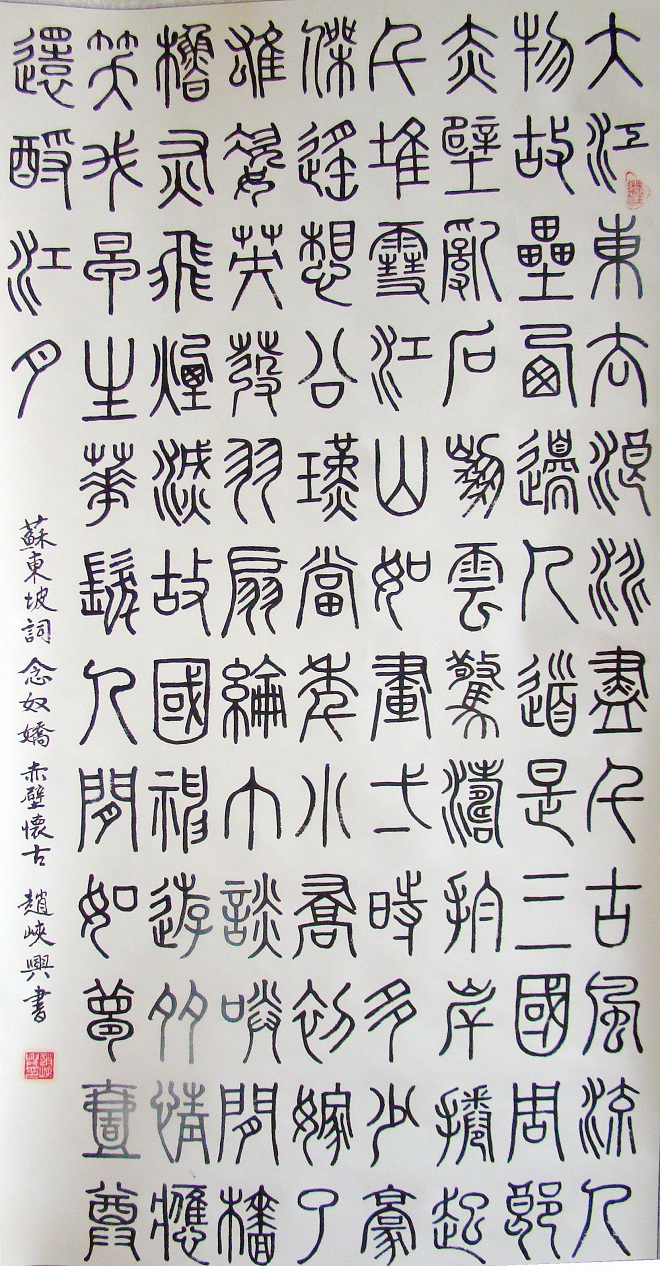 大江東去浪淘盡千古風流人
物故壘西邊人道是三國周郎
赤壁亂石崩雲驚濤拍岸捲起
千堆雪江山如畫弌時多少豪
傑遙想公瑾當年小喬初嫁了
雄姿英發羽扇綸巾談咲間檣
櫓灰飛煙滅故國神遊多情應
笑我早生華髮人間如夢壹尊
還酹江月
蘇東坡詞 念奴嬌 赤壁懷古 趙峽興書